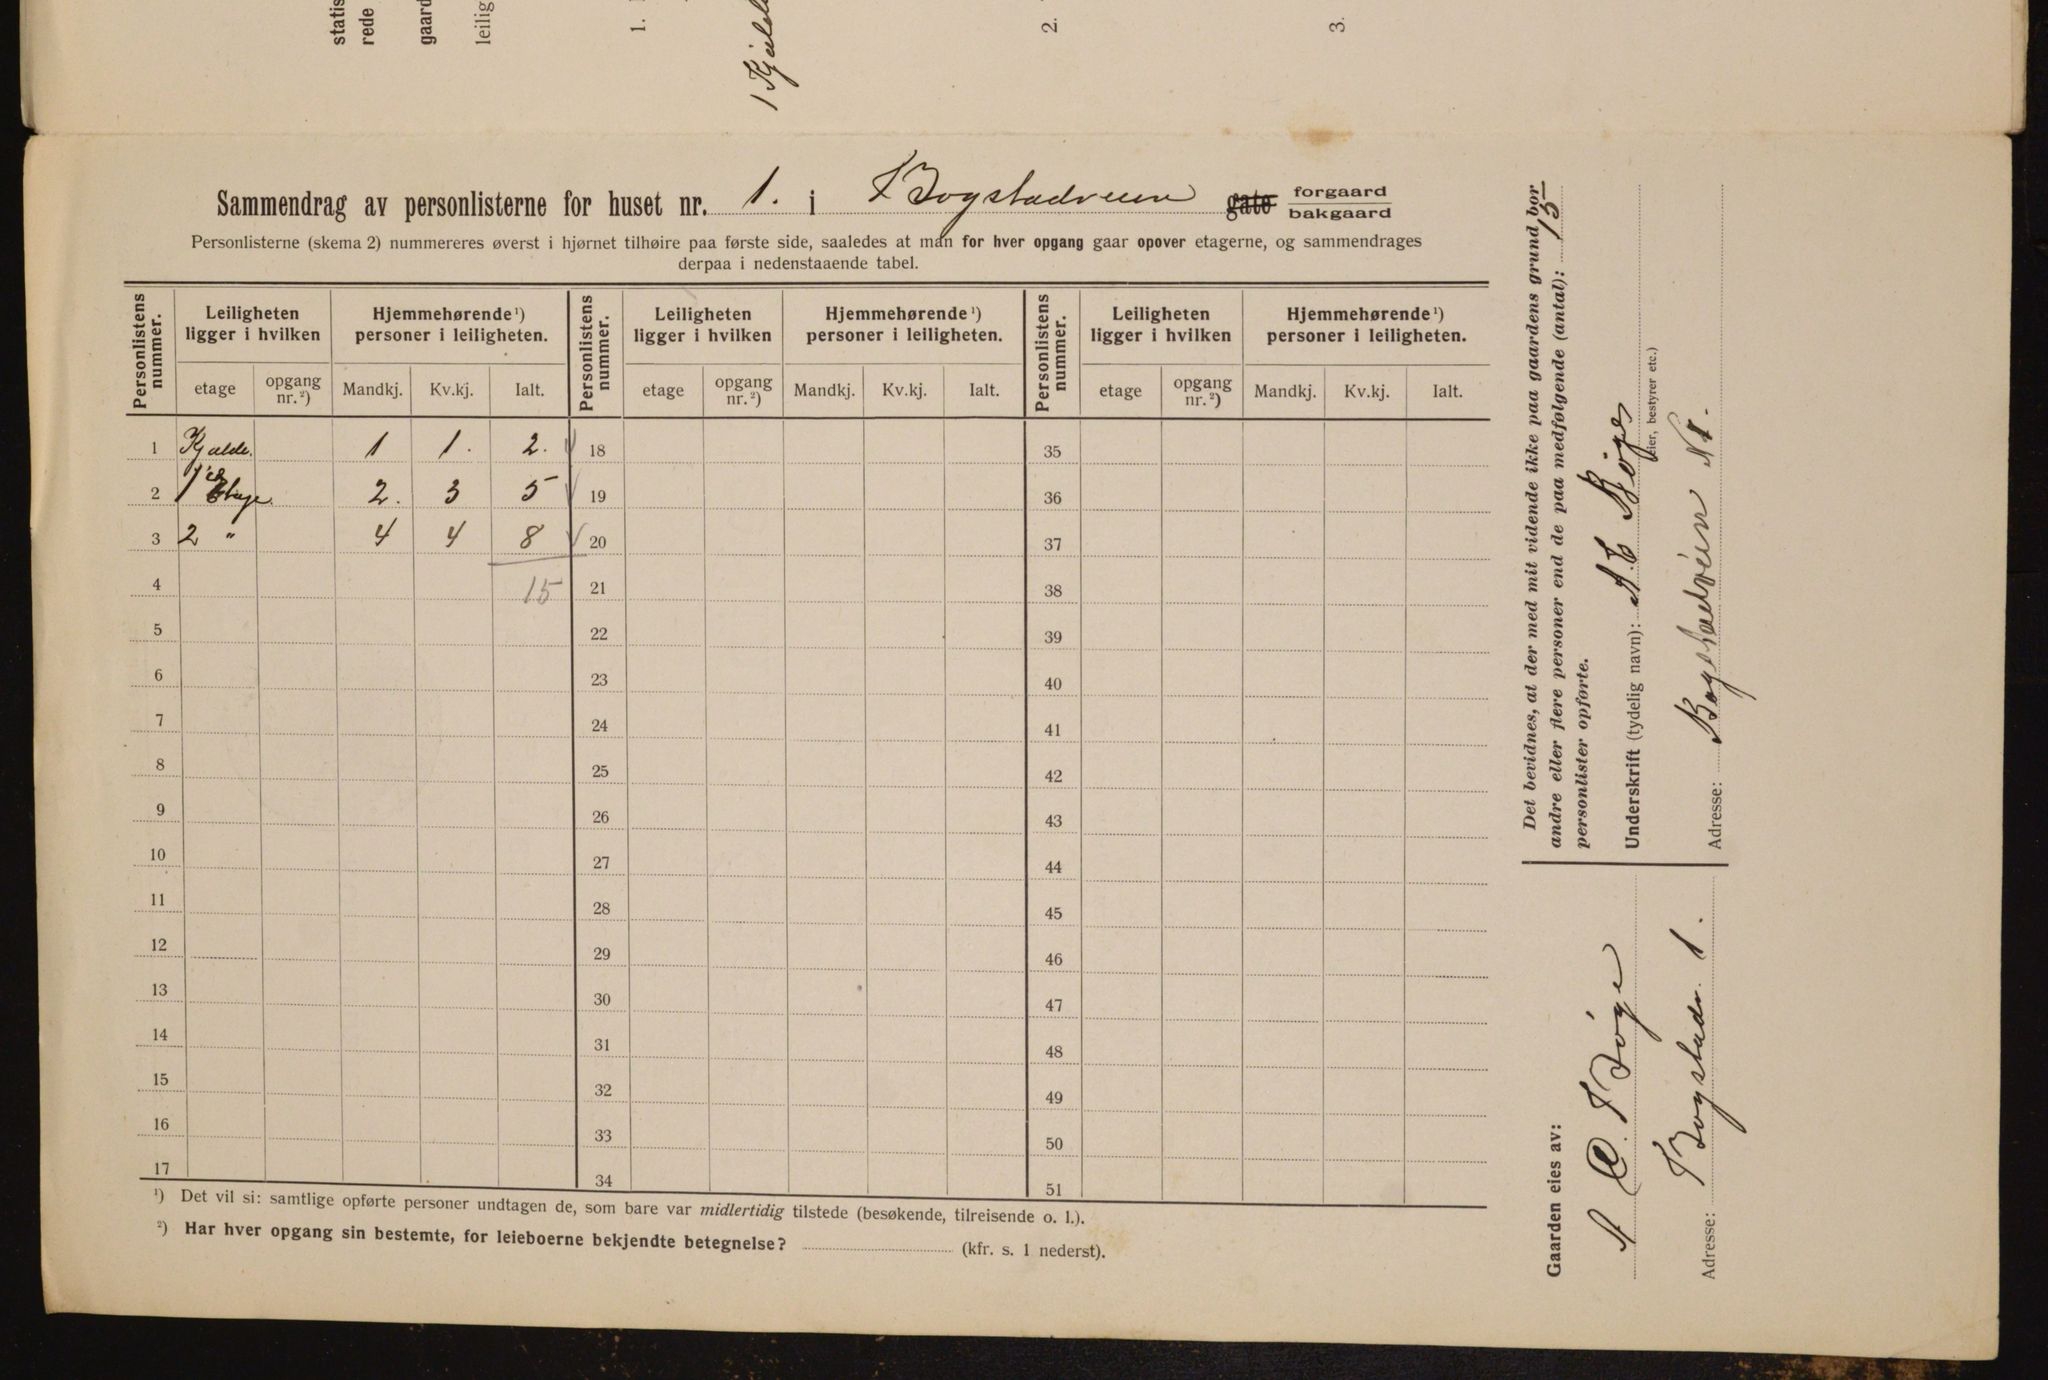 statis
rede
gaard
leilig
1.
1 Kjæld
2.
3.
Sammendrag av personlisterne for huset nr. 1. i Bogstadveien gate forgaard
bakgaard
Personlisterne (skema 2) nummereres øverst i hjørnet tilhøire paa første side, saaledes at man for hver opgang gaar opover etagerne, og sammendrages
derpaa i nedenstaaende tabel.
Personlistens nummer. Leiligheten ligger i hvilken Hjemmehørende ¹) personer i leiligheten. Personlistens nummer. Leiligheten ligger i hvilken Hjemmehørende ¹) personer i leiligheten. Personlistens nummer. Leiligheten ligger i hvilken Hjemmehørende ¹) personer i leiligheten.
etage opgang nr. ²) Mandkj. Kv.kj. Ialt. etage opgang nr. ²) Mandkj. Kv.kj. Ialt. etage opgang nr. ²) Mandkj. Kv.kj. Ialt.
1 Kjælde. 1 1. 2. 18 35
2 1 Etage 2. 3 5 19 36
3 2 " 4 4 8 20 37
4 15 21 38
5 22 39
6 23 40
7 24 41
8 25 42
9 26 43
10 27 44
11 28 45
12 29 46
13 30 47
14 31 48
15 32 49
16 33 50
17 34 51
¹) Det vil si: samtlige opførte personer undtagen de, som bare var midlertidig tilstede (besøkende, tilreisende o. l.).
²) Har hver opgang sin bestemte, for leieboerne bekjendte betegnelse? (kfr. s. 1 nederst).
Det bevidnes, at der med mit vidende ikke paa gaardens grund bor
andre eller flere personer end de paa medfølgende (antal): 15
personlister opførte.
Underskrift (tydelig navn): A C Bøge
(eier, bestyrer etc.)
Adresse: Bogstadveien N 1.
Gaarden eies av:
A C. Bøge
Adresse: Bogstadv. 1.